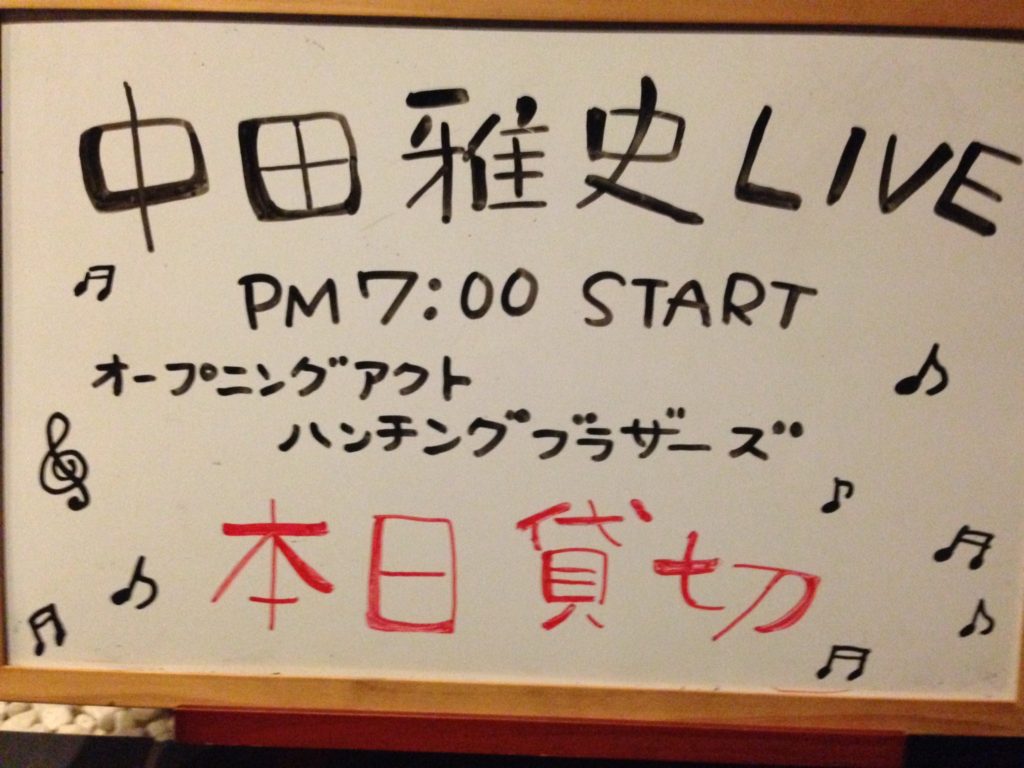 中田雅史LIVE
PM7:00 START
オープニングアクト
ハンチングブラザーズ
本日貸切